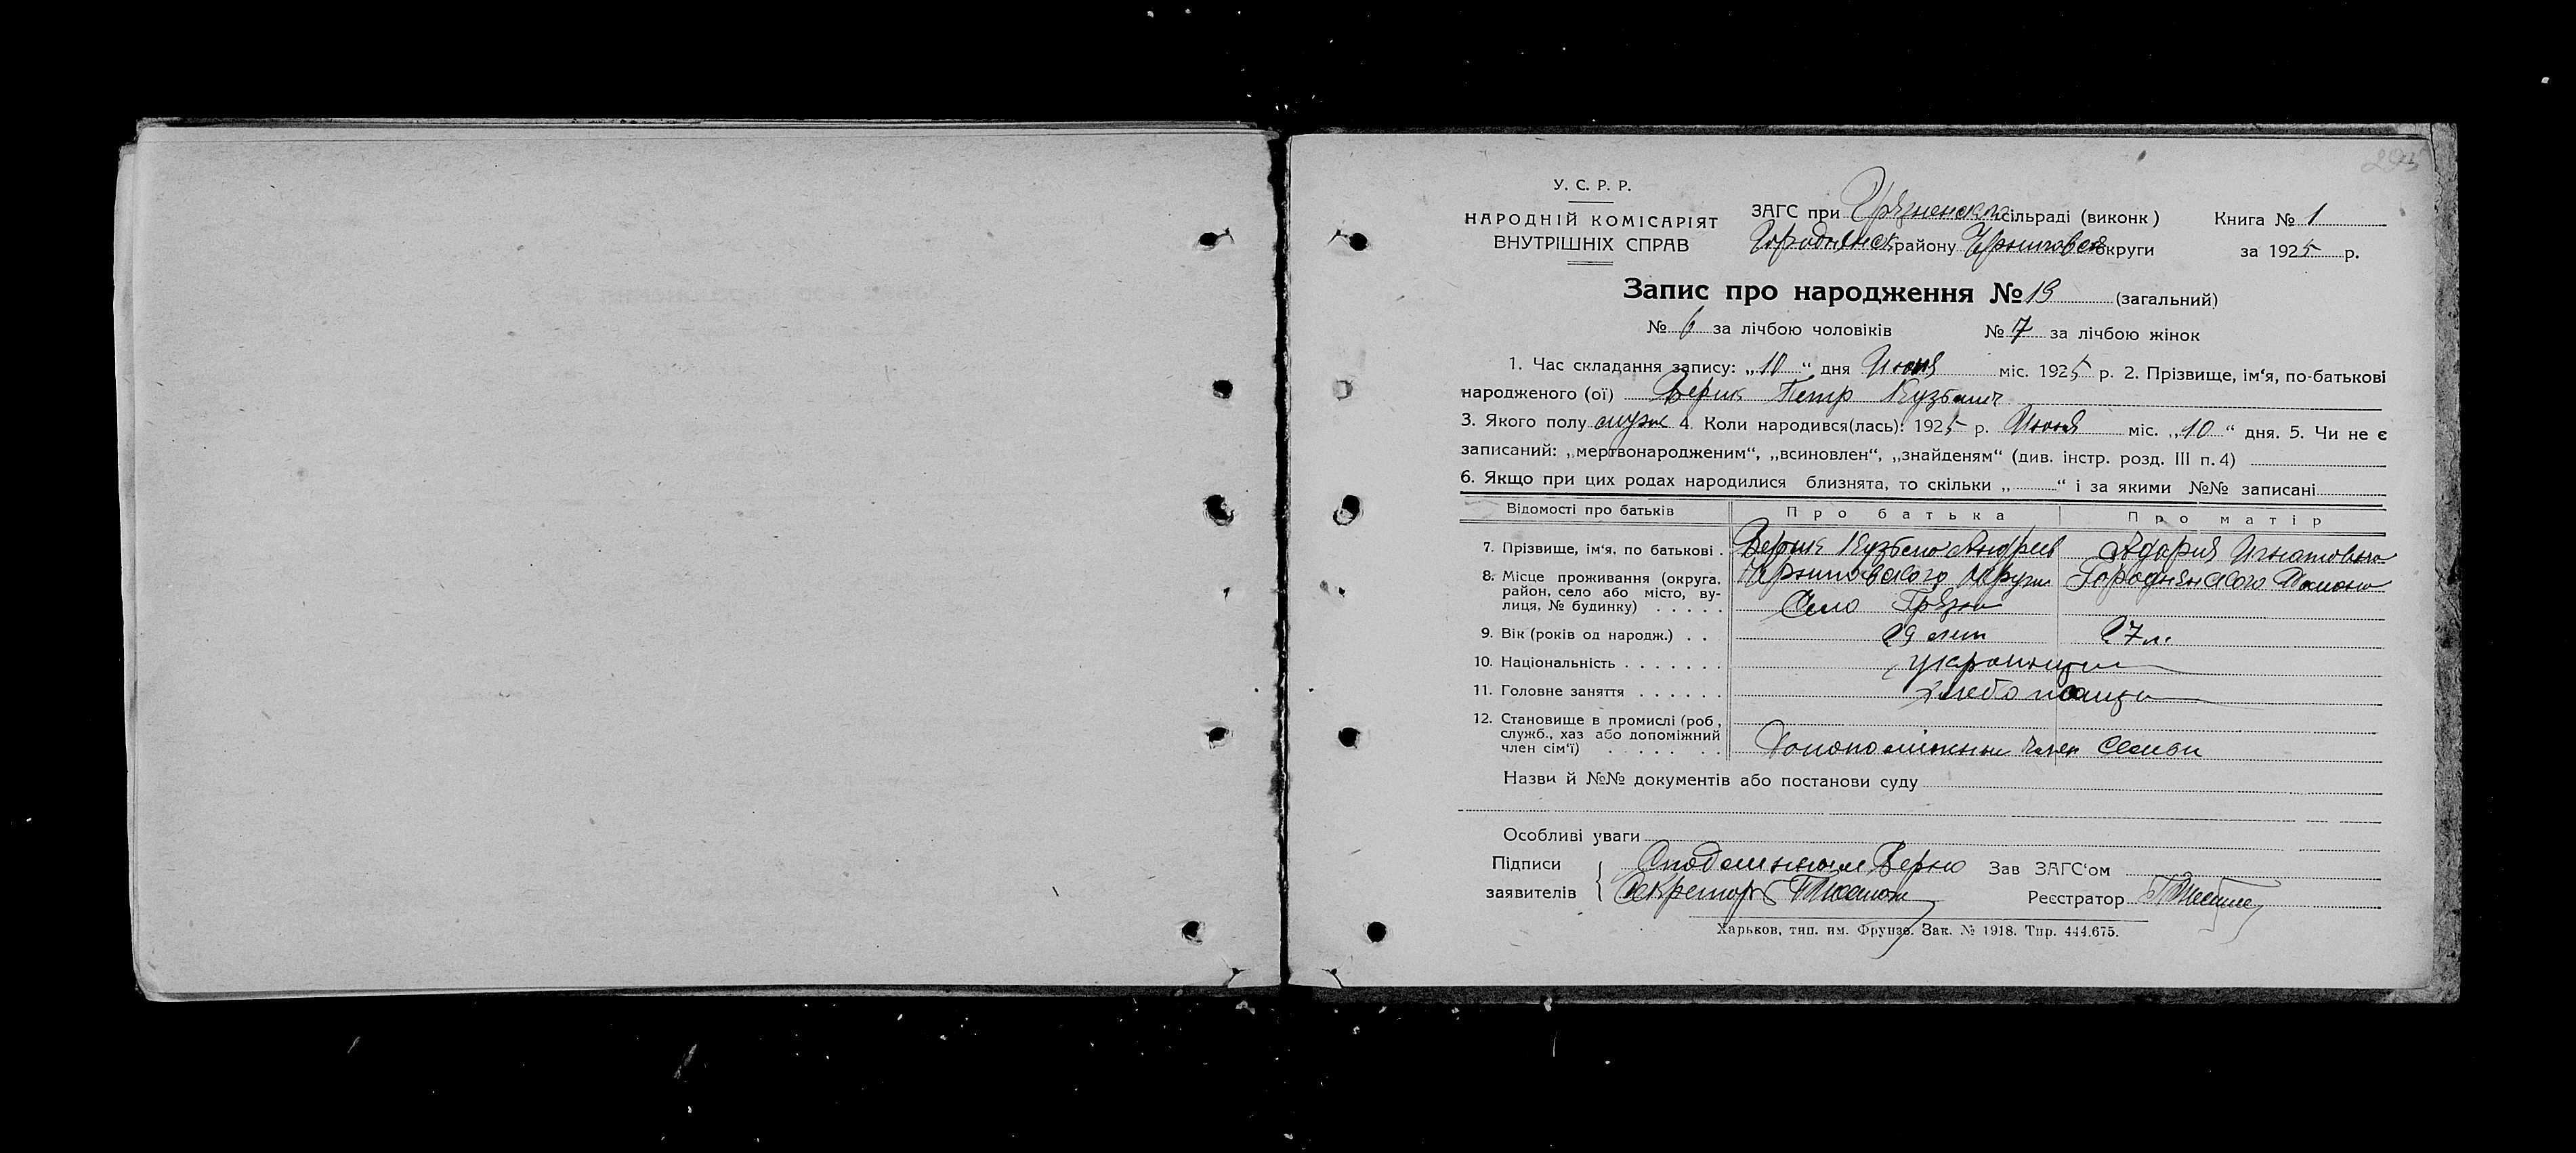 У. С. Р. Р.
НАРОДНІЙ КОМІСАРІЯТ
ВНУТРІШНІХ СПРАВ
ЗАГС при Грязненской сільраді (виконк)
Городнянск району Черниговской округи
Книга № 1
за 1925 р.
Запис про народження № 13 (загальний)
№ 6 за лічбою чоловіків № 7 за лічбою жінок
1. Час складання запису: „10“ дня Июня міс. 1925 р. 2. Прізвище, ім‘я, по-батькові
народженого (ої) Петр Кузьмич
3. Якого полу муж 4. Коли народився(лась): 1925 р. Июня міс. „10“ дня. 5. Чи не є
записаний: „мертвонародженим“, „всиновлен“, „знайденям“ (див. інстр. розд. III п. 4)
6. Якщо при цих родах народилися близнята, то скільки „ “ і за якими №№ записані
Відомості про батьків Про батька Про матір
7. Прізвище, ім‘я, по батькові . Кузьма Андреев Игнатовна
8. Місце проживання (округа, район, село або місто, вулиця, № будинку) . . . . . Черниговского Округи Городнянского Района
Село Грязна
9. Вік (років од народж.) . . 29 лет 27 л.
10. Національність . . . . . . . украинцы
11. Головне заняття . . . . . . хлебопашцы
12. Становище в промислі (роб, служб., хаз або допоміжний член сім‘ї) . . . . . . . член семьи
Назви й №№ документів або постанови суду
Особливі уваги
Підписи
заявителів
Зав ЗАГС‘ом
Секретарь
Реєстратор
Харьков, тип. им. Фрунзе. Зак. № 1918. Тир. 444.675.